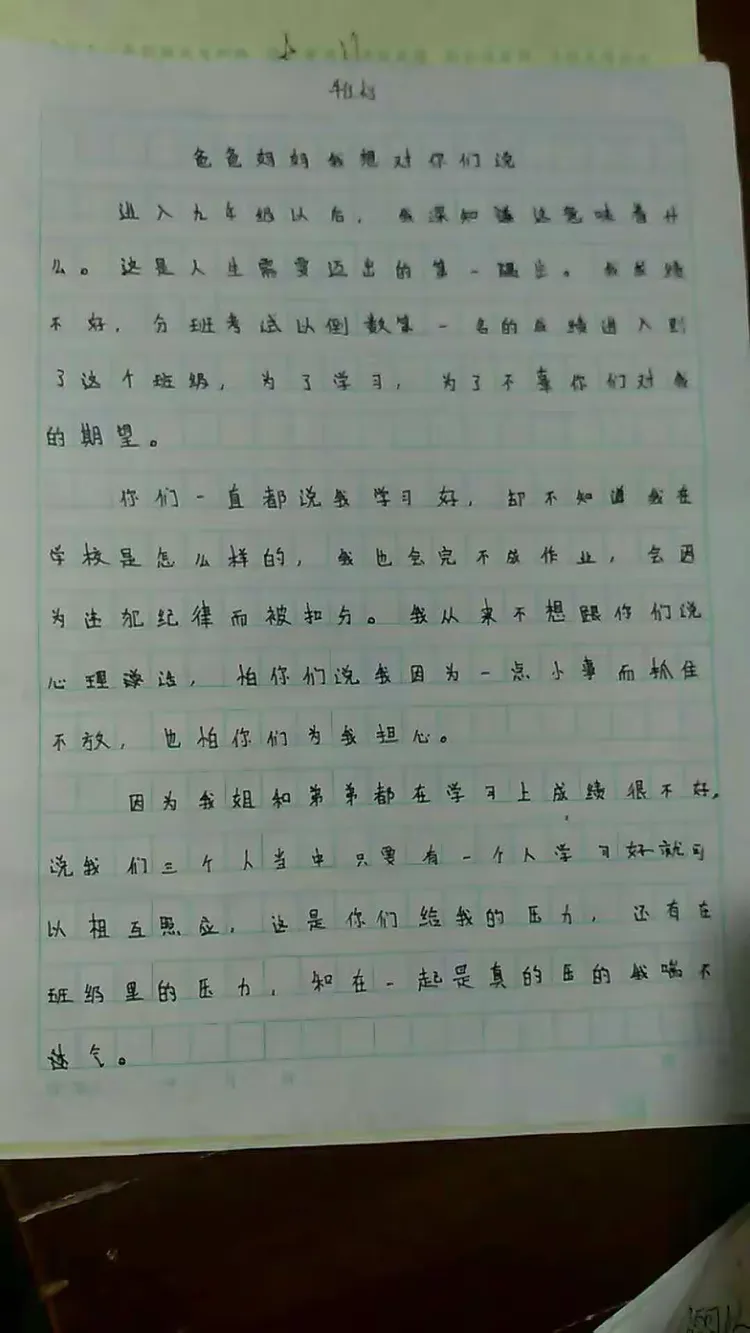 爸爸妈妈我想对你们说
进入九年级以后，我深知道这意味着什
么。这是人生需要迈出的第一踏步。我成绩
不好，分班考试以倒数第一名的成绩进入到
了这个班级，为了学习，为了不辜你们对我
的期望。
你们一直都说我学习好，却不知道我在
学校是怎么样的，我也会完不成作业，会因
为违犯纪律而被扣分。我从来不想跟你们说
心理话，怕你们说我因为一点小事而抓住
不放，也怕你们为我担心。
因为我姐和弟弟都在学习上成绩很不好，
说我们三个人当中只要有一个人学习好就可
以相互照应，这是你们给我的压力，还有在
班级里的压力，和在一起是真的压的我喘不
过气。